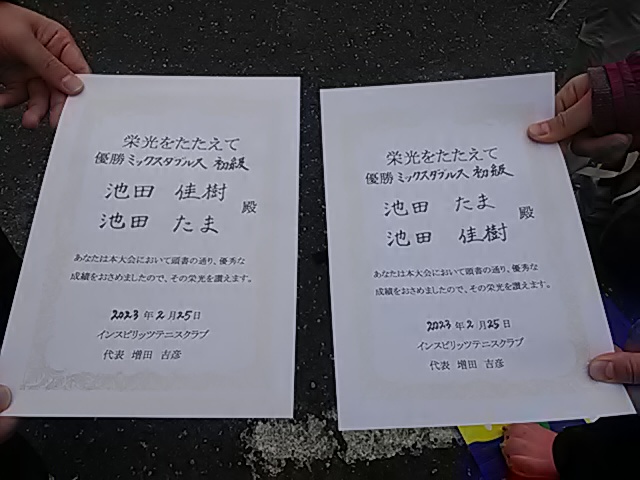 栄光をたたえて
優勝ミックスダブルス 初級
池田 佳樹
池田 たま 殿
あなたは本大会において頭書の通り、優秀な
成績をおさめましたので、その栄光を讃えます。
2023 年 2 月 25 日
インスピリッツテニスクラブ
代表 増田 吉彦
栄光をたたえて
優勝ミックスダブルス 初級
池田 たま
池田 佳樹 殿
あなたは本大会において頭書の通り、優秀な
成績をおさめましたので、その栄光を讃えます。
2023 年 2 月 25 日
インスピリッツテニスクラブ
代表 増田 吉彦